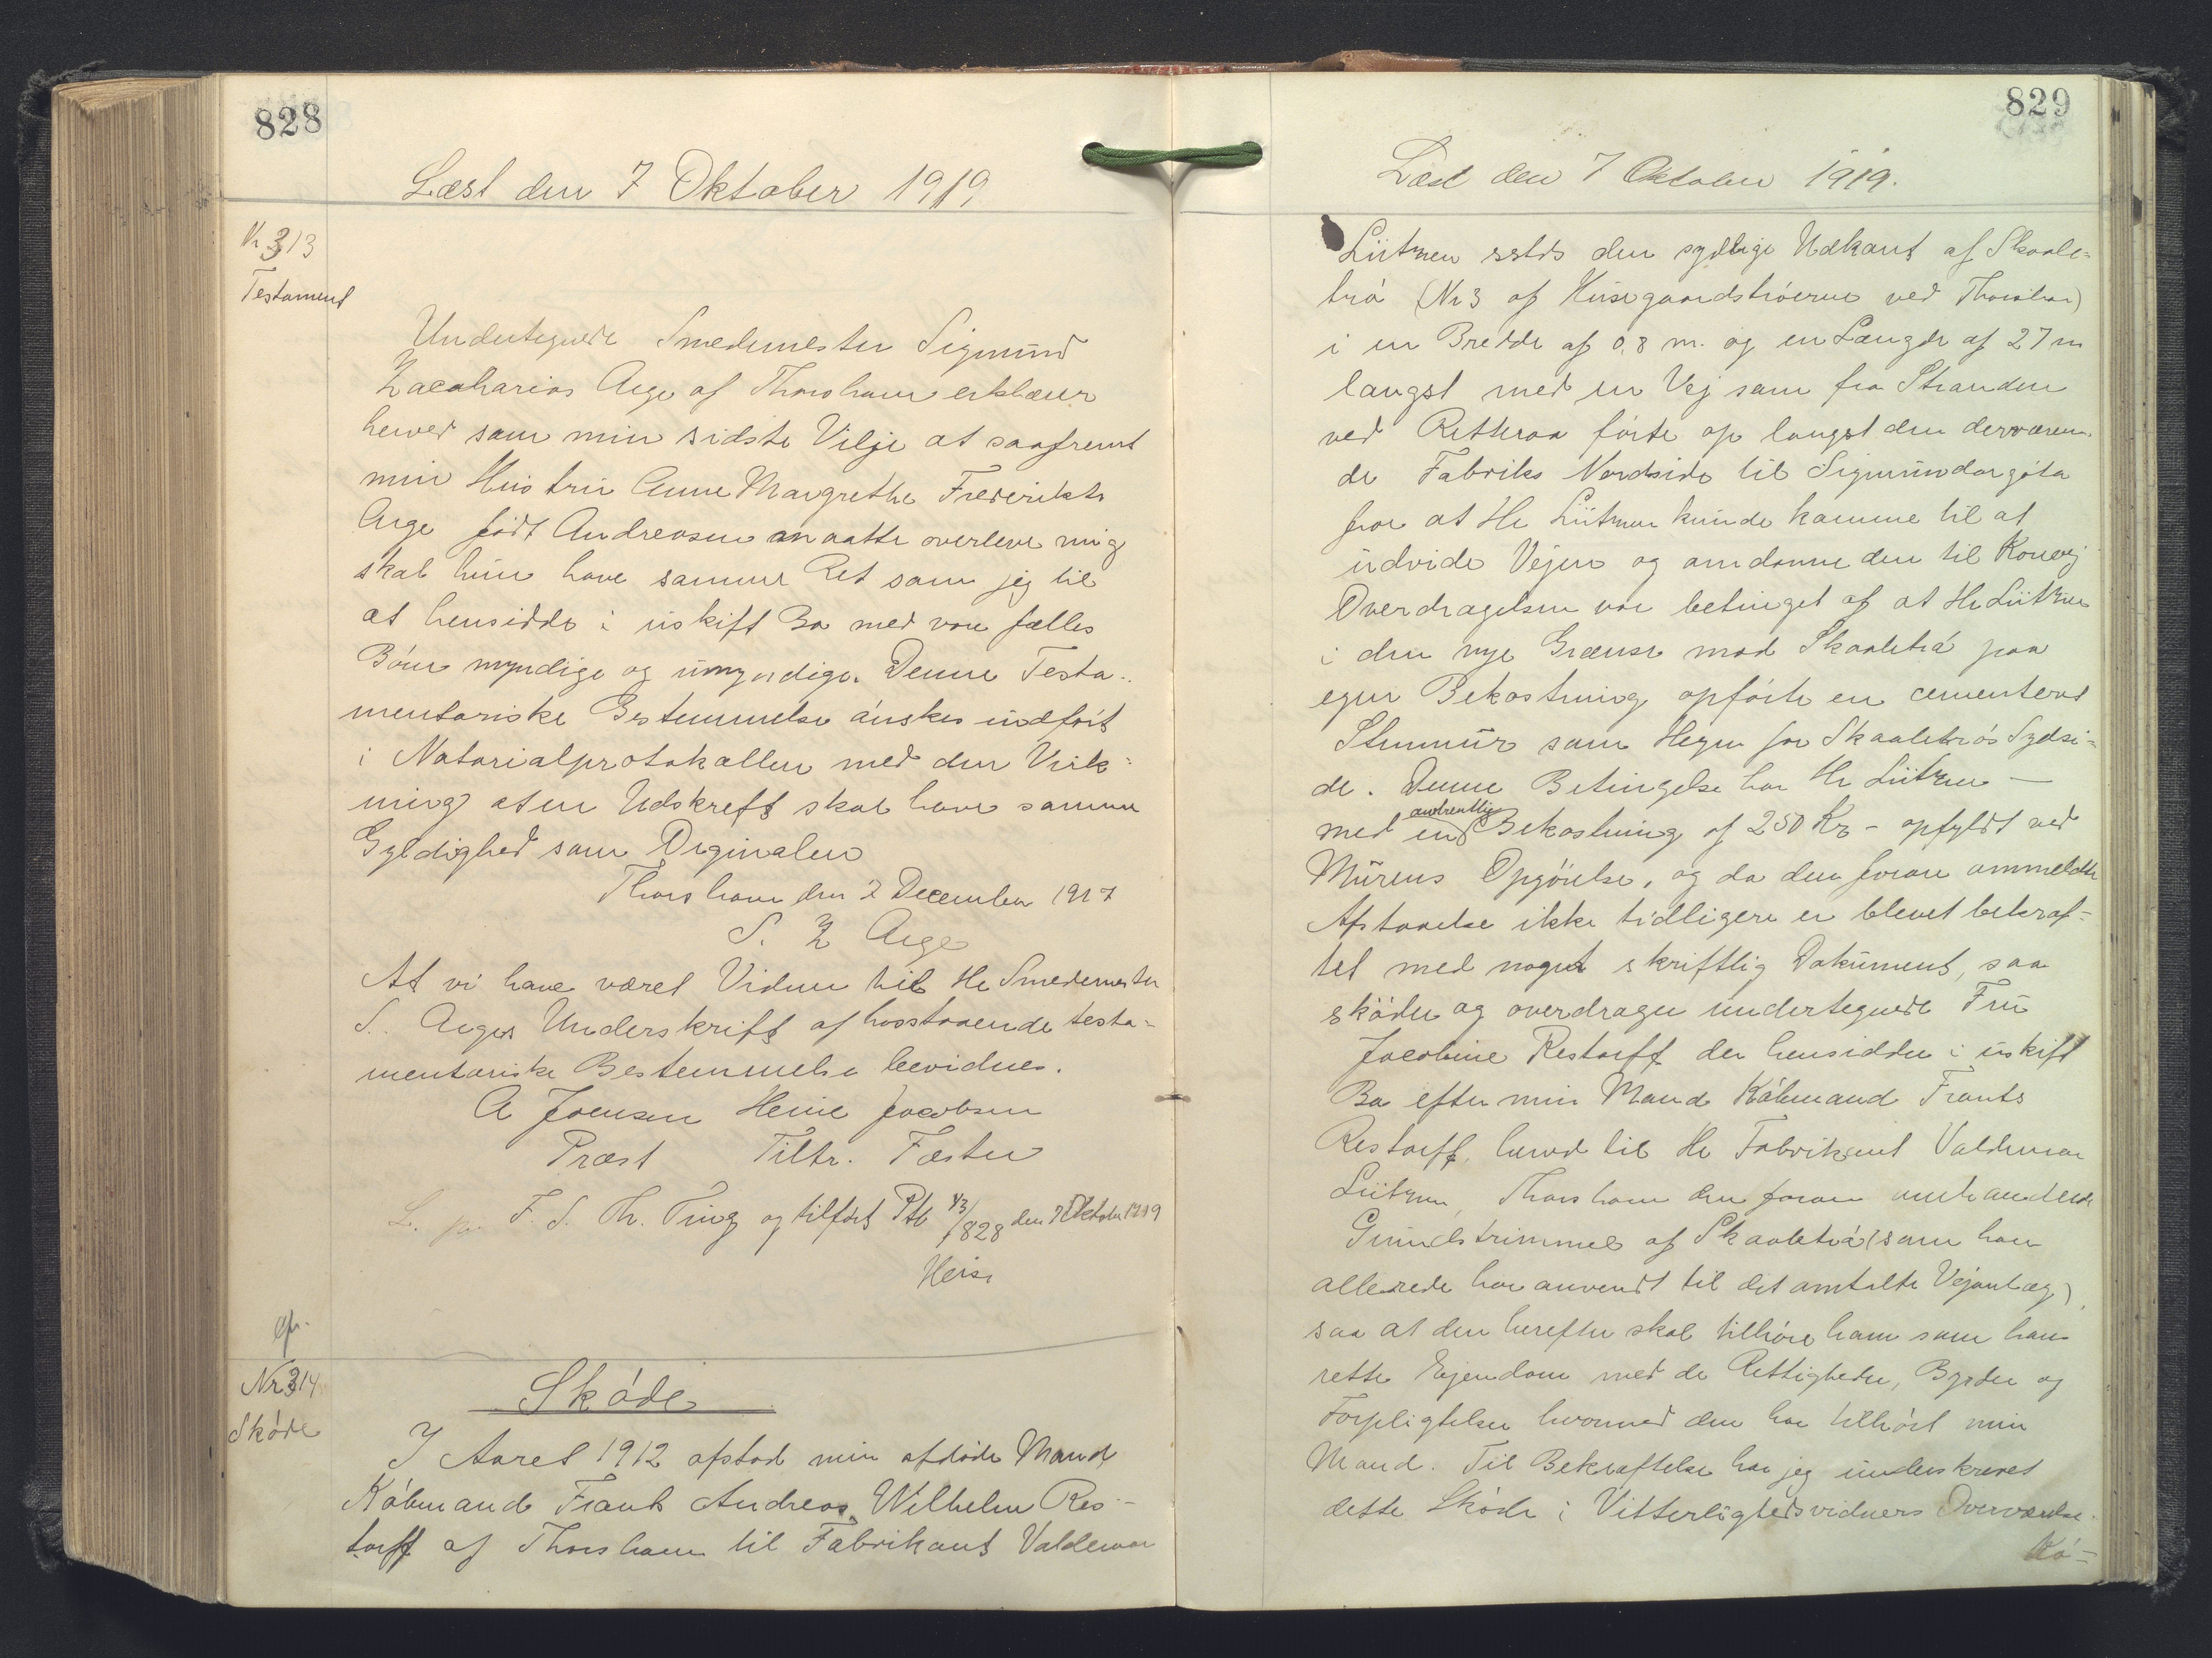 828
Læst den 7 Oktober 1919
Nr 313
Testament
Undertegnede Smedemester Sigmund
Zacaharias Arge af Thorshavn erklærer
herved som min sidste Vilje at saafremt
min Hustru Anne Margrethe Frederikke
Arge født Andreasen maatte overleve mig
skal hun have samme Ret som jeg til
at hensidde i uskift Bo med vore fælles
Børn myndige og umyndige. Denne Testa-
mentariske Bestemmelse ønskes indført
i Notarialprotokollen med den Virk-
ning at en Udskreft skal have samme
Gyldighed som Orginalen
Thorshavn den 2 December 1917
S. Z Arge
At vi have været Vidne til Hr Smedemester
S. Arges Underskrift af hosstaaende testa-
mentariske Bestemmelse bevidnes.
A Joensen Heine Jacobsen
Præst Tiltr. Fæster
L. paa F. S. Th. Ting og tilført Ptk 43/828 den 7 Oktober 1919
Heise
Nr 314
Skøde
Skøde
I Aaret 1912 afstod min afdøde Mand
Købmand Frants Andreas Wilhelm Res-
torff af Thorshavn til Fabrikant Valdemar
829
Læst den 7 Oktober 1919.
Lützen sstds den sydlige Udkant af Skaale-
trø (Nr 3 af Husegaardstrøerne ved Thorshavn)
i en Bredde af 0,8 m. og en Længde af 27 m
langst med en Vej som fra Stranden
ved Rættaraa førte op langst den derværen-
de Fabriks Nordside til Sigmundargøta
for at Hr Lützen kunde komme til at
udvide Vejen og omdanne den til Kørevej
Overdragelsen var betinget af at Hr Lützen
i den nye Grænse mod Skaaletrø paa
egen Bekostning opførte en cementeret
Stenmur som Hegn for Skaaletrøs Sydsi-
de. Denne Betingelse har Hr Lützen —
med en omtrentlig Bekostning af 250 Kr - opfyldt ved
Murens Opgørelse, og da den foran ommeldte
Afstaaelse ikke tidligere er blevet bekræf-
tet med noget skriftlig Dokument, saa
skøder og overdrager undertegnede Fru
Jacobine Restorff der hensidder i uskift
Bo efter min Mand Købmand Frants
Restorff, herved til Hr Fabrikant Valdemar
Lützen, Thorshavn den foran omhandlede
Grundstrimmel af Skaaletrø (som han
allerede har anvendt til det omtalte Vejanlæg)
saa at den herefter skal tilhøre ham som hans
rette Ejendom med de Rettigheder, Byrder og
Forpligtelser hvormed den har tilhørt min
Mand. Til Bekræftelse har jeg underskrevet
dette Skøde i Vitterlighedsvidners Overværelse.
Kø-